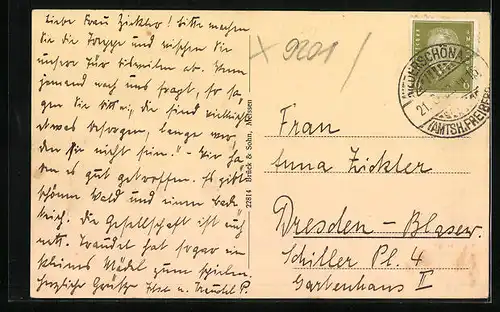 Liebe Frau Zickler! Bitte machen
Sie die Treppe und wischen Sie
unsere Tür bisweilen ab. Wenn
jemand nach uns fragt, so sa-
gen Sie bitte, die sind vielleicht
etwas besorgen, lange wer-
den sie nicht sein! - Wir ha-
ben es gut getroffen. Es gibt
schönen Wald und einen Bade-
teich. Die Gesellschaft ist auch
nett. Traudel hat sogar ein
kleines Mädel zum spielen.
Herzliche Grüße Ilse u. Traudel P.
22814 Brück & Sohn, Meissen
9201
NIEDERSCHÖNA
21.
(AMTSH. FREIBERG)
Frau
Anna Zickler
Dresden-Blasew.
Schiller Pl. 4
Gartenhaus II